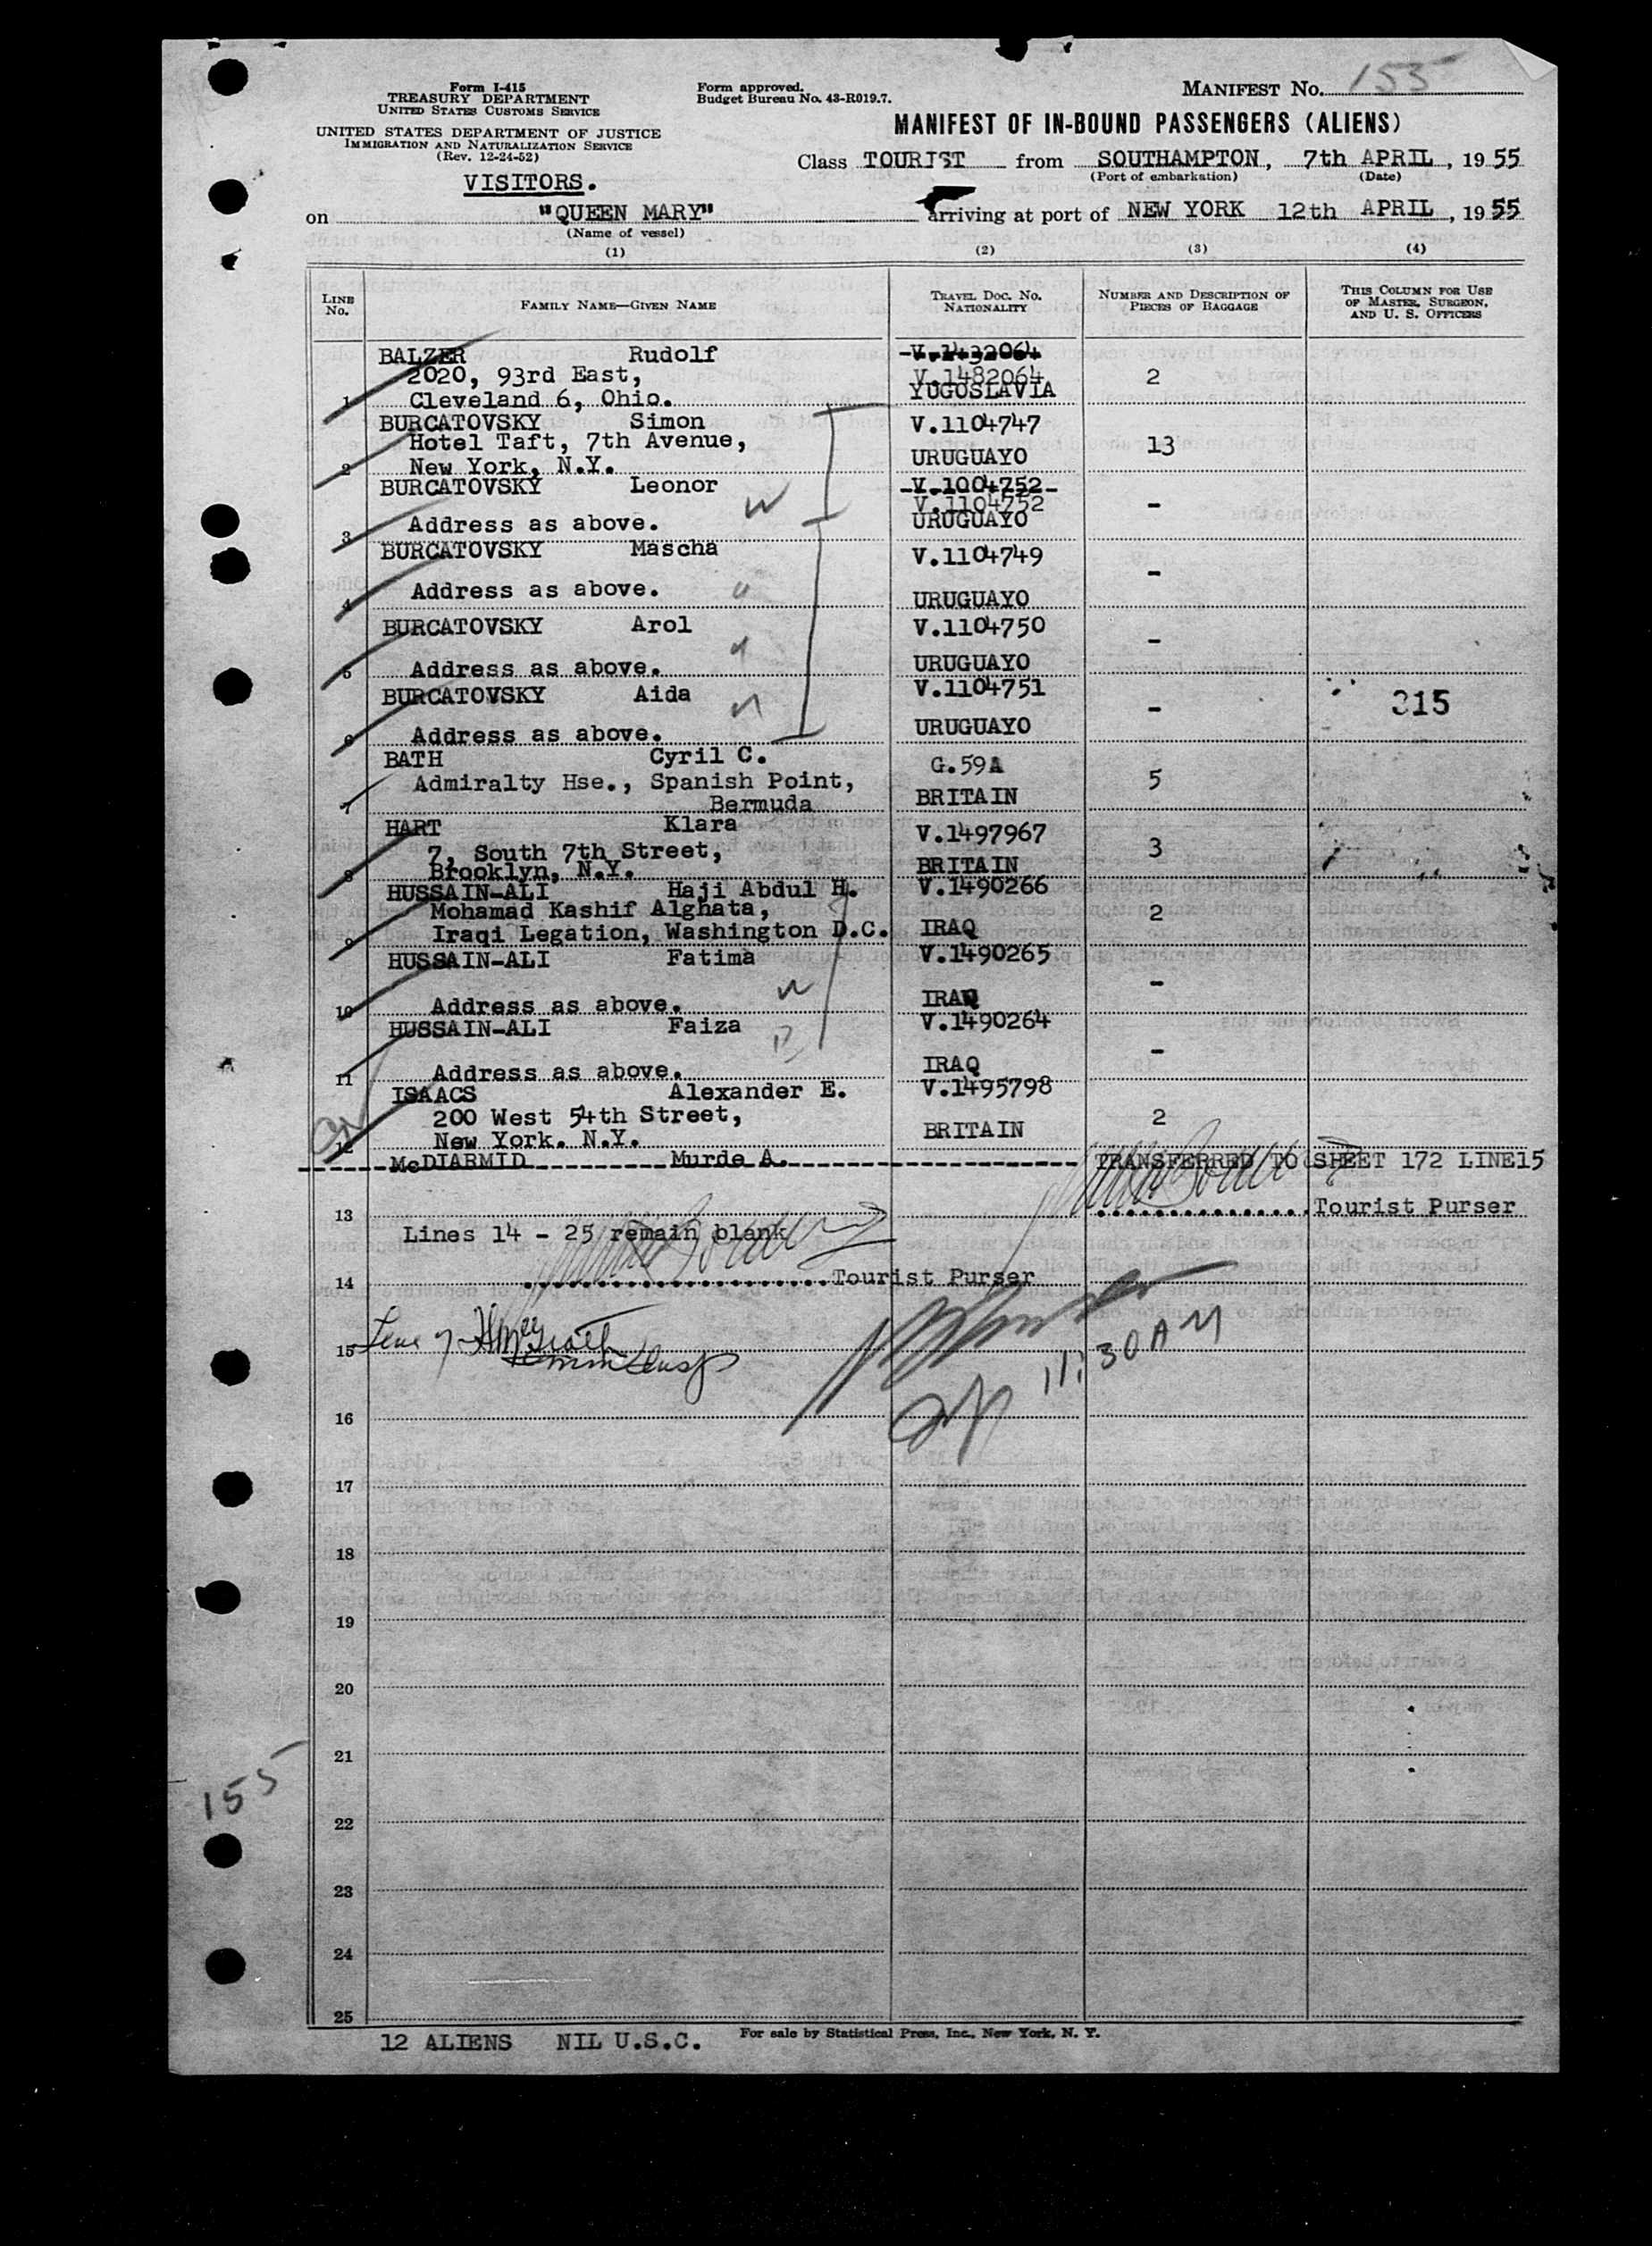 Form I-415
TREASURY DEPARTMENT
UNITED STATES CUSTOMS SERVICE
UNITED STATES DEPARTMENT OF JUSTICE
IMMIGRATION AND NATURALIZATION SERVICE
(Rev. 12-24-52)
VISITORS.
Form approved.
Budget Bureau No. 43-R019.7.
MANIFEST No. 155
MANIFEST OF IN-BOUND PASSENGERS (ALIENS)
Class TOURIST from SOUTHAMPTON, 7th APRIL, 1955
(Port of embarkation) (Date)
on "QUEEN MARY" arriving at port of NEW YORK 12th APRIL, 1955
(Name of vessel)
(1) (2) (3) (4)
LINE No. FAMILY NAME—GIVEN NAME TRAVEL DOC. No. NATIONALITY NUMBER AND DESCRIPTION OF PIECES OF BAGGAGE THIS COLUMN FOR USE OF MASTER, SURGEON, AND U. S. OFFICERS
BALZER Rudolf V.1432064
2020, 93rd East, V.1482064 2
1 Cleveland 6, Ohio. YUGOSLAVIA
BURCATOVSKY Simon V.1104747
Hotel Taft, 7th Avenue, 13
2 New York, N.Y. URUGUAYO
BURCATOVSKY Leonor V.1004752
V.1104752 -
3 Address as above. URUGUAYO
BURCATOVSKY Mascha V.1104749
-
4 Address as above. URUGUAYO
BURCATOVSKY Arol V.1104750
-
5 Address as above. URUGUAYO
BURCATOVSKY Aida V.1104751
- 315
6 Address as above. URUGUAYO
BATH Cyril C. G.59A
Admiralty Hse., Spanish Point, 5
7 Bermuda BRITAIN
HART Klara V.1497967
7, South 7th Street, 3
8 Brooklyn, N.Y. BRITAIN
HUSSAIN-ALI Haji Abdul H. V.1490266
Mohamad Kashif Alghata, 2
9 Iraqi Legation, Washington D.C. IRAQ
HUSSAIN-ALI Fatima V.1490265
-
10 Address as above. IRAQ
HUSSAIN-ALI Faiza V.1490264
-
11 Address as above. IRAQ
ISAACS Alexander E. V.1495798
200 West 54th Street, 2
12 New York. N.Y. BRITAIN
McDIARMID Murde A. TRANSFERRED TO SHEET 172 LINE15
Tourist Purser
13
Lines 14 - 25 remain blank
14 Tourist Purser
15
11:30 AM
16
17
18
19
20
21
155
22
23
24
25
12 ALIENS NIL U.S.C.
For sale by Statistical Press, Inc., New York, N. Y.